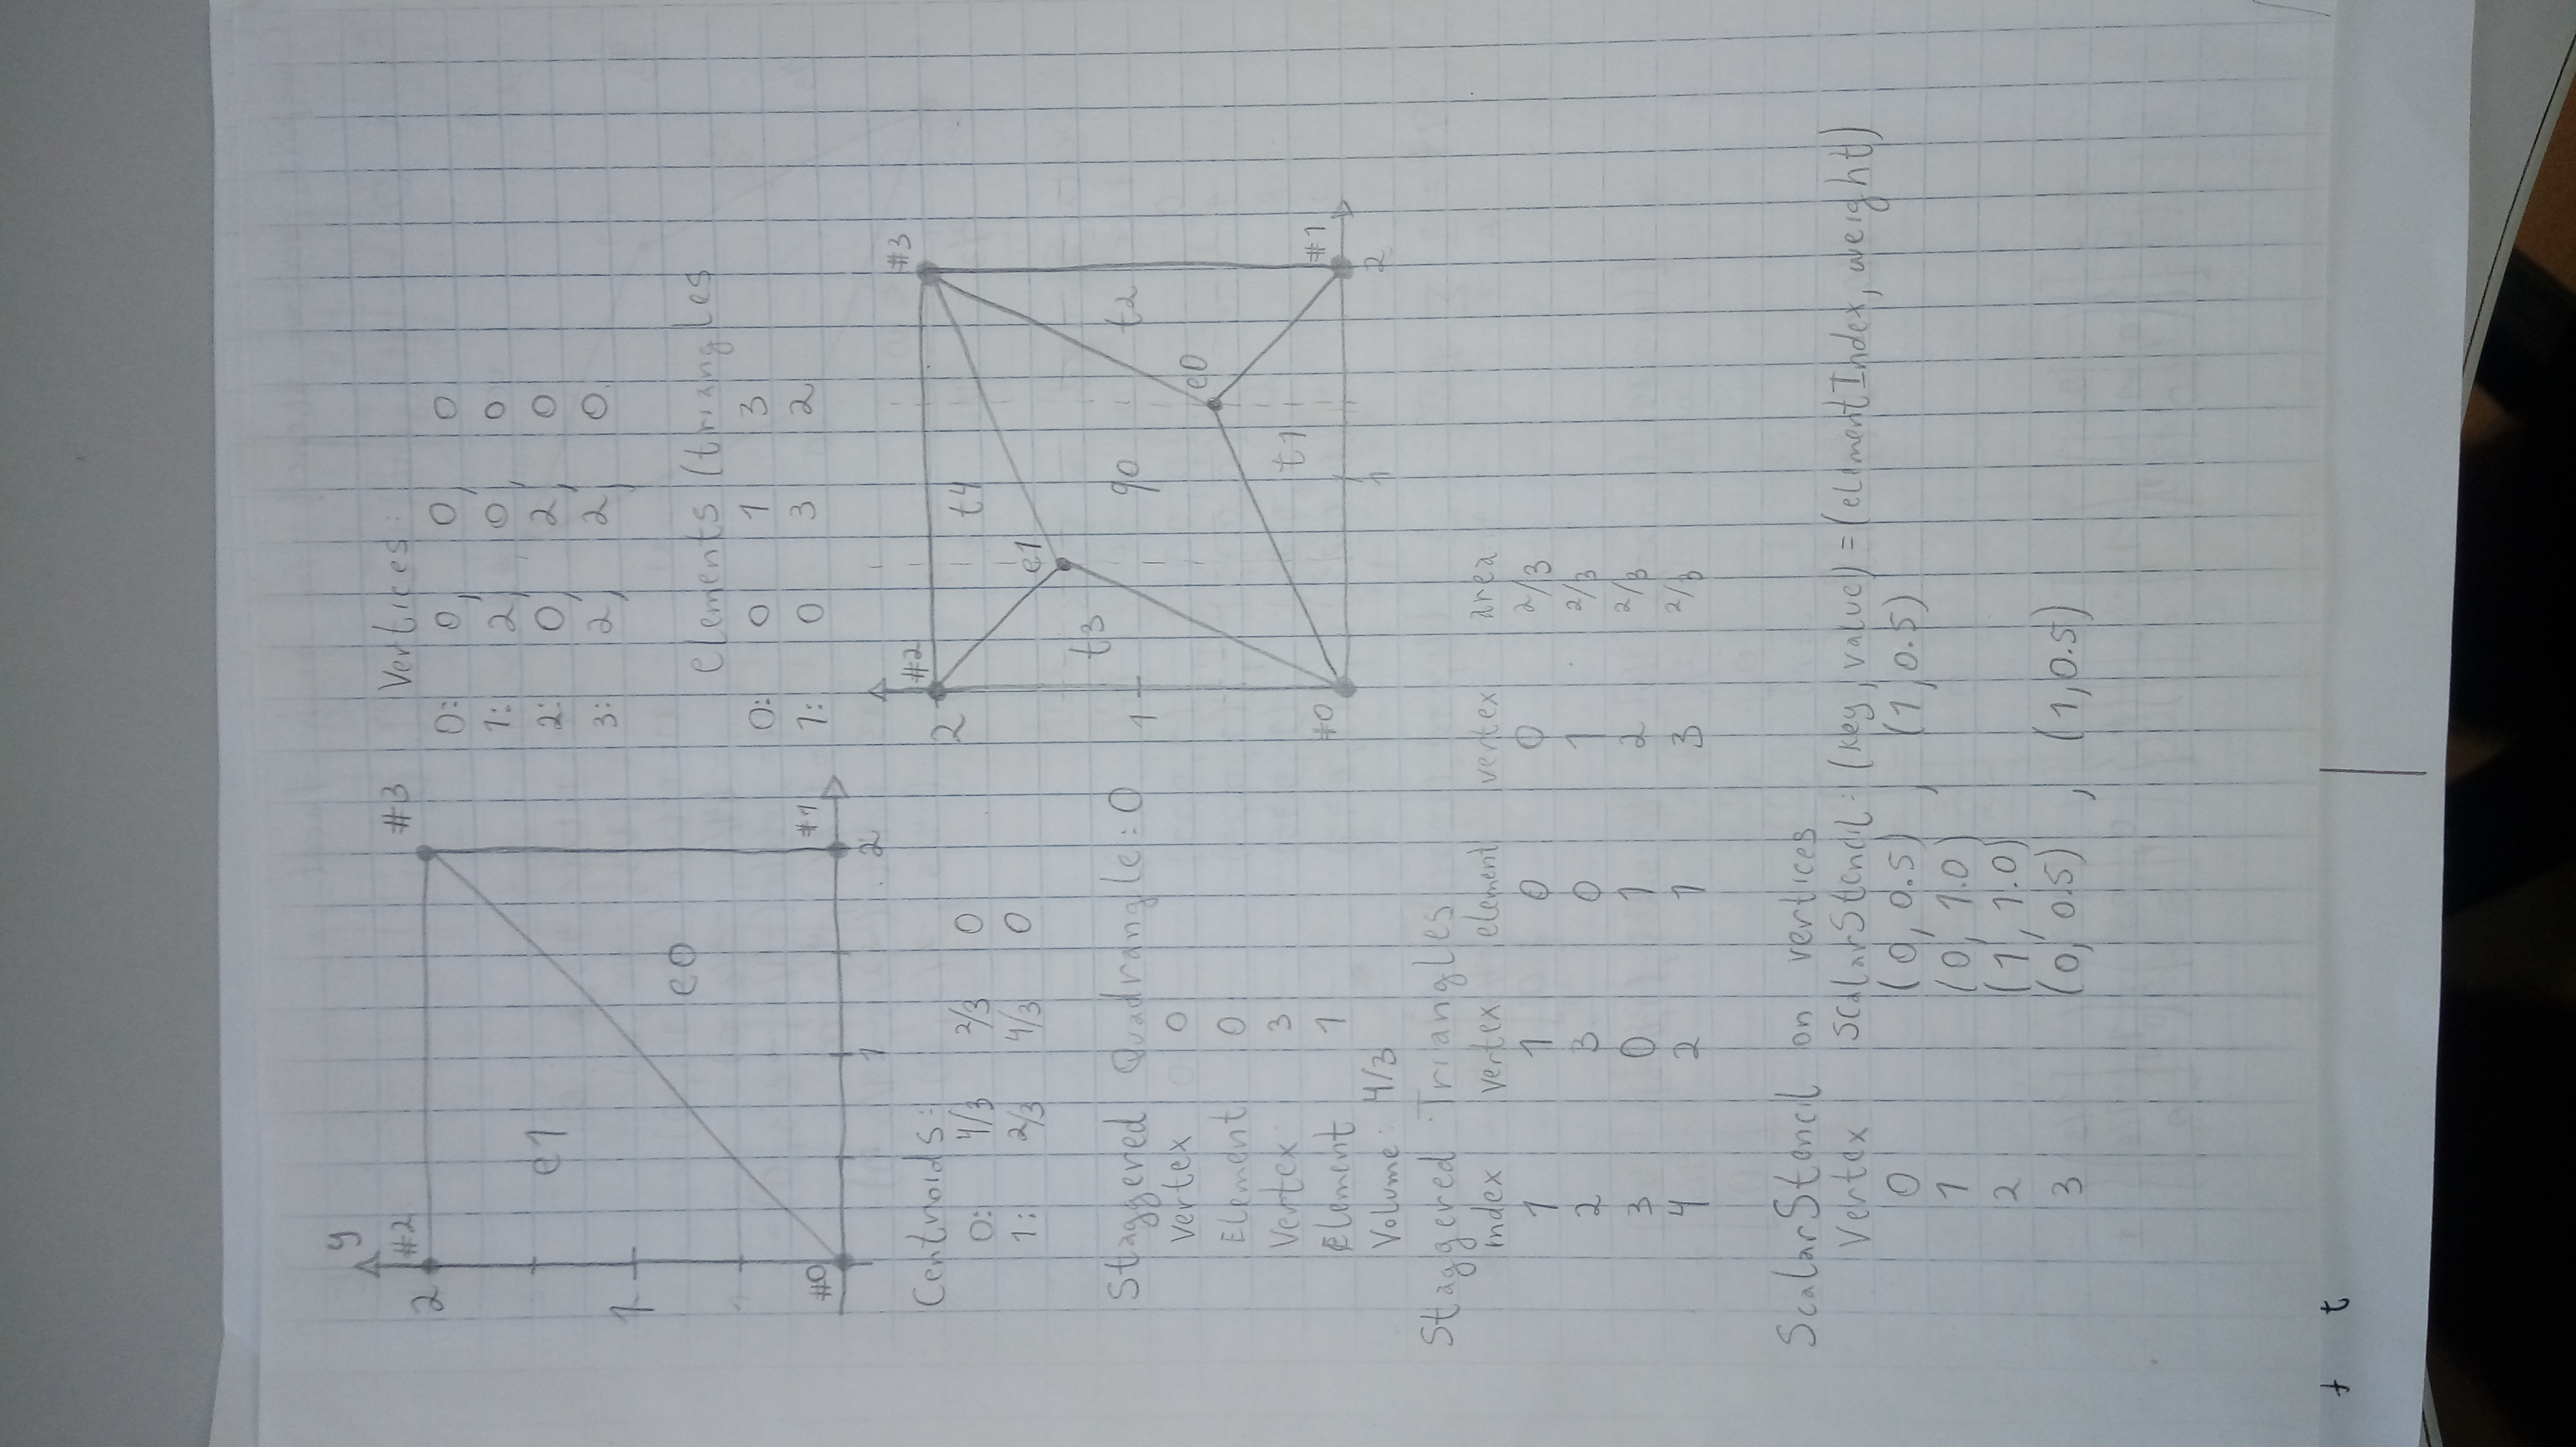 y
2 #2 #3
e1
1
e0
#0 #1
1 2
Vertices:
0: 0, 0, 0
1: 2, 0, 0
2: 0, 2, 0
3: 2, 2, 0
Elements (triangles
0: 0 1 3
1: 0 3 2
Centroids:
0: 4/3 2/3 0
1: 2/3 4/3 0
#2 #3
2
t4
e1
t3
1 q0 t2
e0
t1
#0 #1
1 2
Staggered Quadrangle: 0
Vertex 0
Element 0
Vertex 3
Element 1
Volume: 4/3
Staggered Triangles
index vertex element vertex area
1 1 0 0 2/3
2 3 0 1 2/3
3 0 1 2 2/3
4 2 1 3 2/3
ScalarStencil on vertices
Vertex ScalarStencil: (key, value) = (elementIndex, weight)
0 (0, 0.5) , (1, 0.5)
1 (0, 1.0)
2 (1, 1.0)
3 (0, 0.5) , (1, 0.5)
t